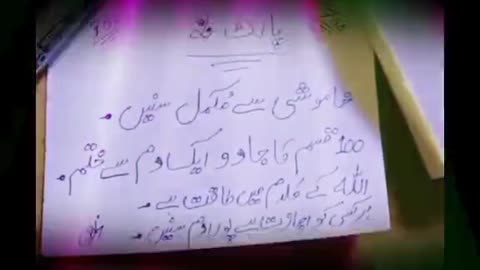 پارٹ
خاموشی سے مکمل سنیں .
100 قسم کا جادو ایک دم سے ختم .
اللہ کے کلام میں طاقت ہے .
ہر کسی کو اجازت ہے پورا دم سنیں .